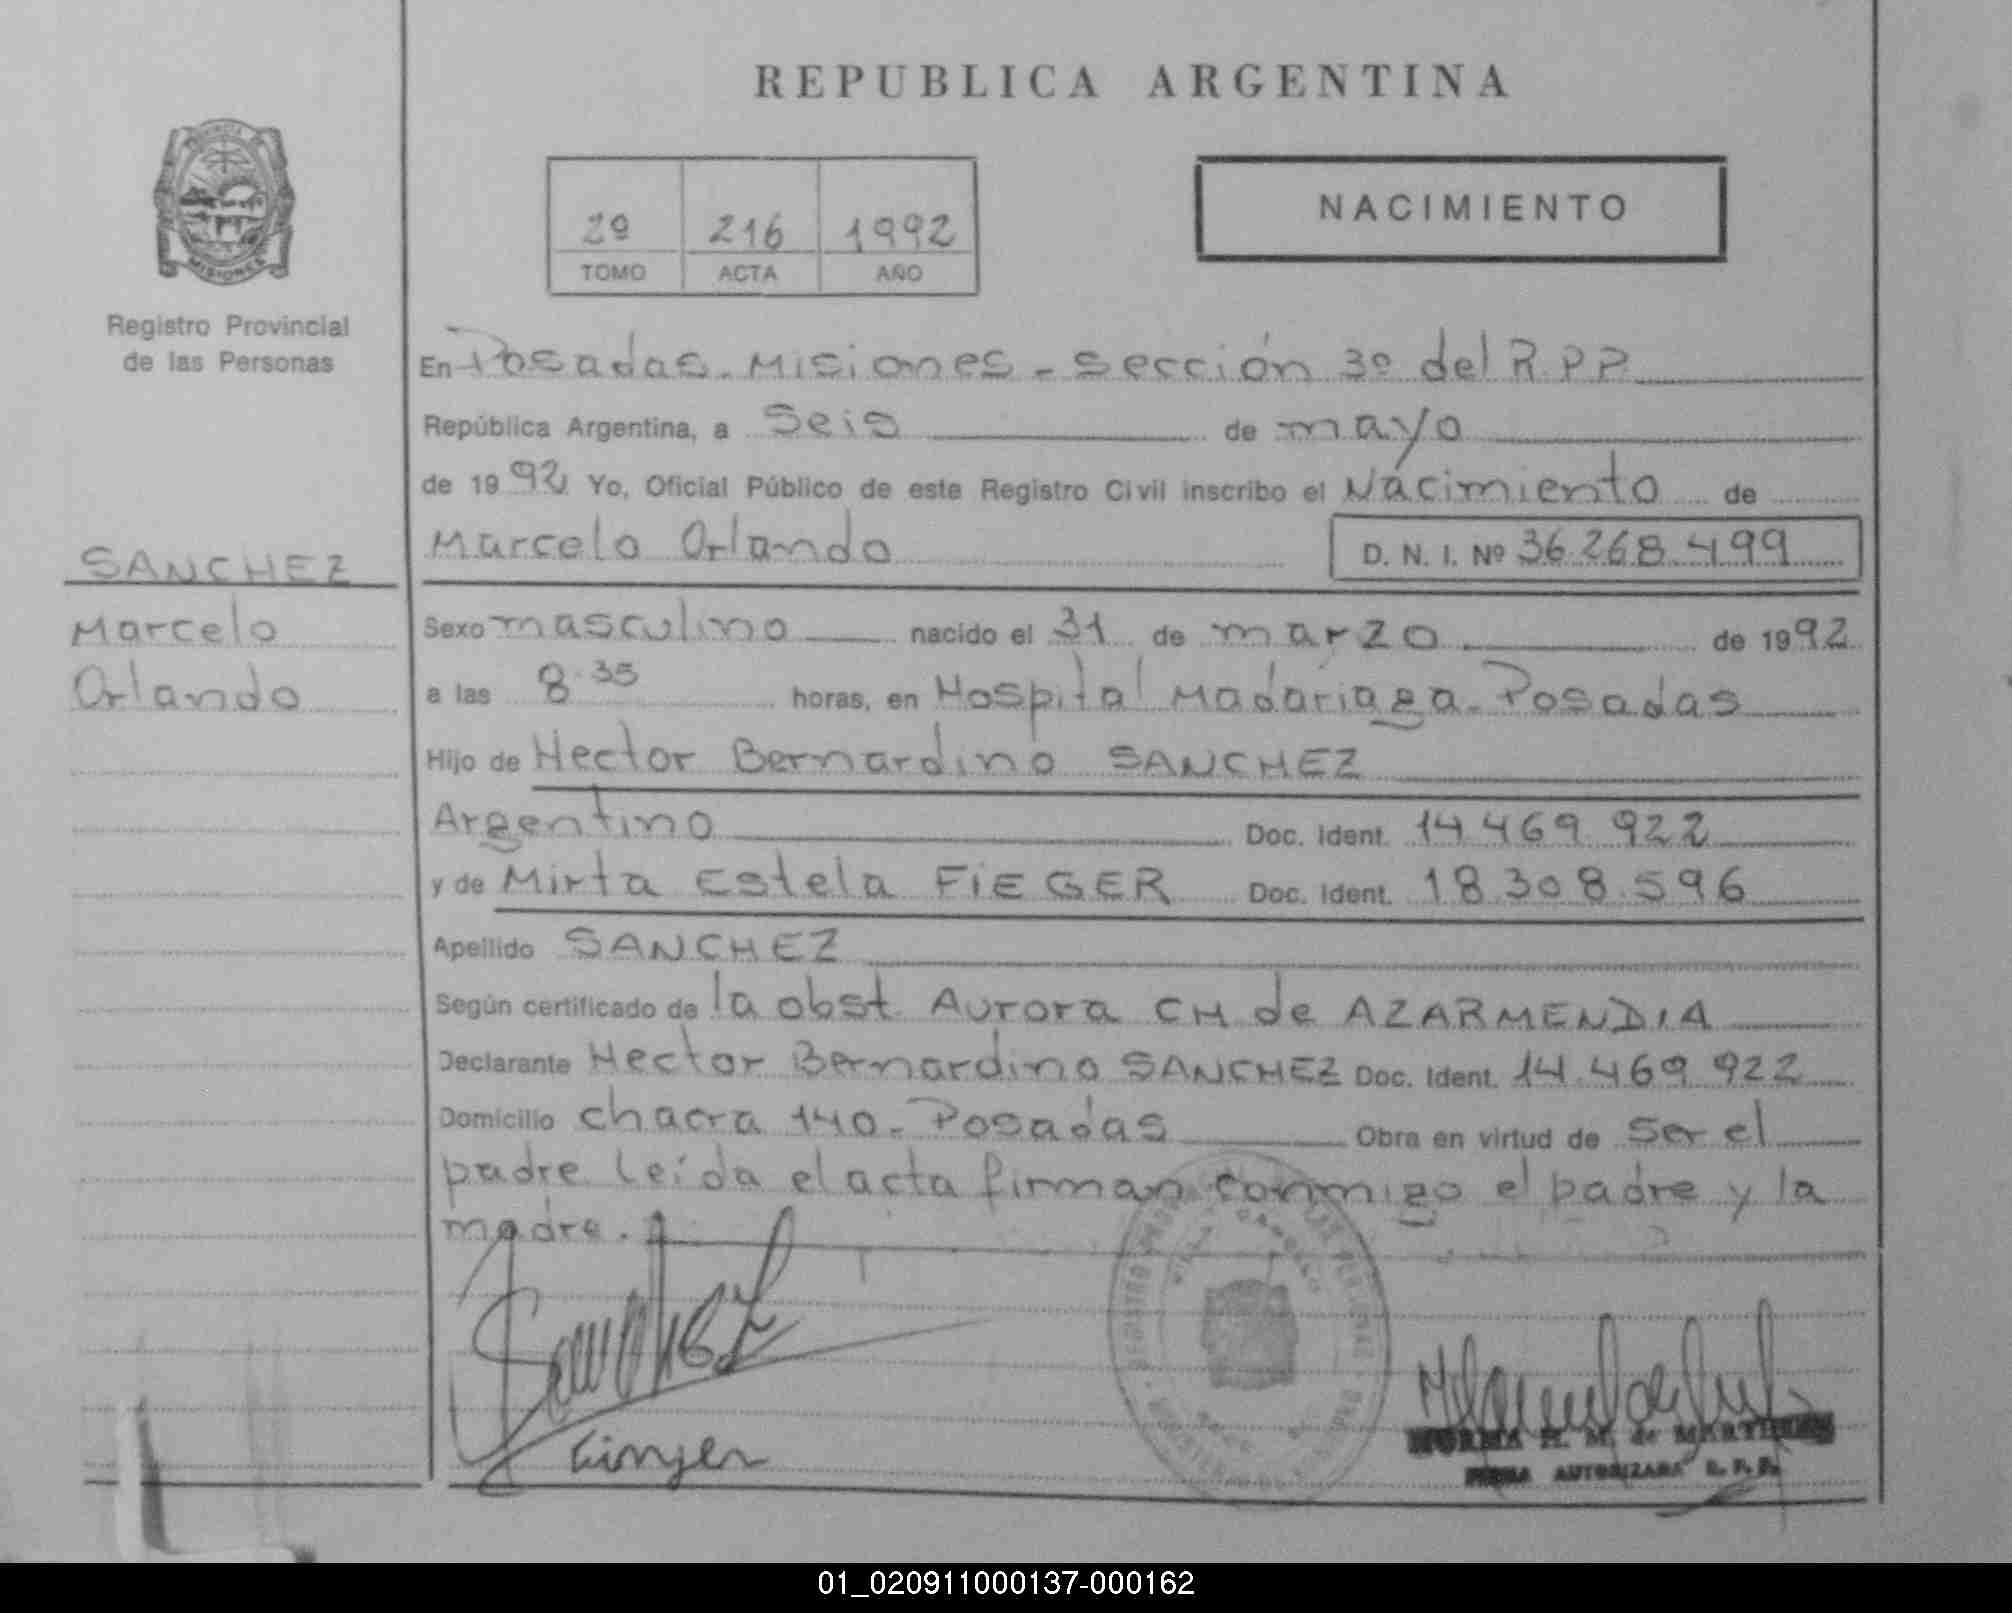 REPUBLICA ARGENTINA
PROVINCIA
MISIONES
Registro Provincial
de las Personas
2º 216 1992
TOMO ACTA AÑO
NACIMIENTO
En Posadas. Misiones - Sección 3º del R.P.P.
República Argentina, a Seis de mayo
de 1992 Yo, Oficial Público de este Registro Civil inscribo el Nacimiento de
Marcelo Orlando D. N. I. Nº 36.268.499
SANCHEZ
Marcelo
Orlando
Sexo masculino nacido el 31 de marzo de 1992
a las 8.35 horas, en Hospital Madariaga. Posadas
Hijo de Hector Bernardino SANCHEZ
Argentino Doc. Ident. 14.469.922
y de Mirta Estela FiEGER Doc. Ident. 18.308.596
Apellido SANCHEZ
Según certificado de la obst. Aurora CH de AZARMENDIA
Declarante Hector Bernardino SANCHEZ Doc. Ident. 14.469.922
Domicilio chacra 140. Posadas Obra en virtud de ser el
padre. Leída el acta firman conmigo el padre y la
madre.
Sanchez
NORMA H. M. de MARTINEZ
FIRMA AUTORIZADA R. P. P.
01_020911000137-000162